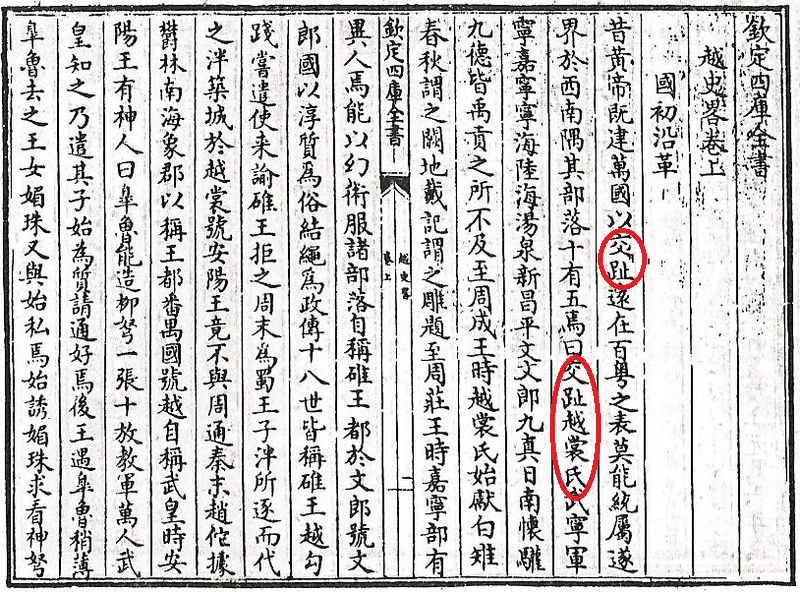 欽定四庫全書
越史畧卷上
國初沿革
昔黃帝既建萬國以交趾逺在百粤之表莫能統屬遂
界於西南隅其部落十有五焉曰交趾越裳氏武寧軍
寧嘉寧寧海陸海湯泉新昌平文文郎九真日南懷驩
九德皆禹貢之所不及至周成王時越裳氏始獻白雉
春秋謂之闕地戴記謂之雕題至周莊王時嘉寧部有
欽定四庫全書
越史畧
卷上
一
異人焉能以幻術服諸部落自稱碓王都於文郎號文
郎國以淳質爲俗結繩爲政傳十八世皆稱碓王越勾
踐嘗遣使来諭碓王拒之周末爲蜀王子泮所逐而代
之泮築城於越裳號安陽王竟不與周通秦末趙佗據
欝林南海象郡以稱王都番禺國號越自稱武皇時安
陽王有神人曰臯魯能造柳弩一張十放教軍萬人武
皇知之乃遣其子始為質請通好焉後王遇臯魯稍薄
臯魯去之王女媚珠又與始私焉始誘媚珠求看神弩